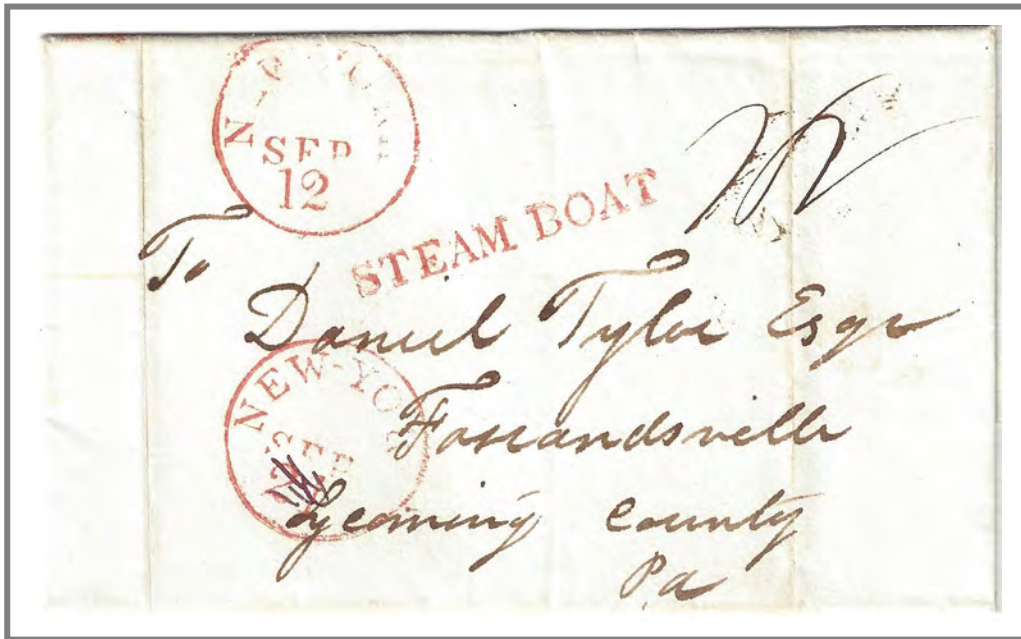 SEP
12
STEAM BOAT
To
Daniel Tylor Esqr
NEW-YO
SEP
Farrandsville
Lycoming County
Pa